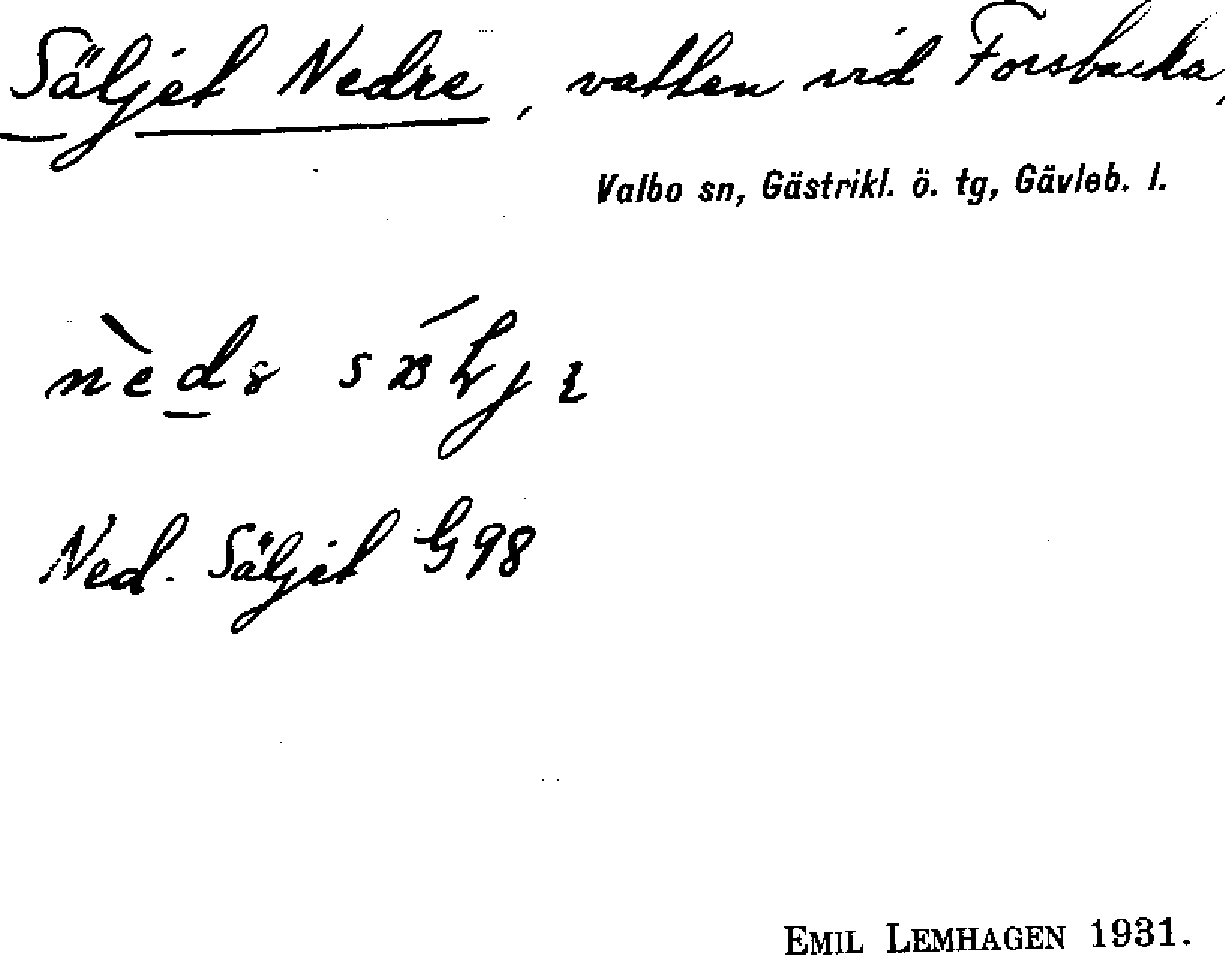 Säljet Nedre, vatten vid Forsbacka,
Valbo sn, Gästrikl. ö. tg, Gävleb. l.
Ned. Säljet G98
EMIL LEMHAGEN 1931.